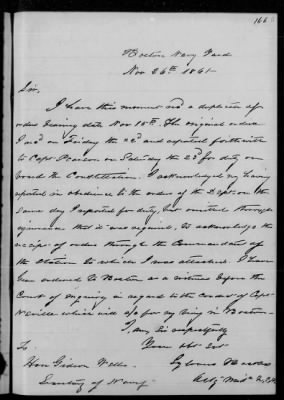 166
Boston Navy Yard
Nov 26th 1861
Sir,
I have this moment recd a duplicate of
orders bearing date Nov 18th. The original orders
I recd on Friday the 22d and reported forthwith
to Capt Pearson on Saturday the 23d for duty on
board the Constellation. I acknowledged my having
reported in obedience to the orders of the Dept. on the
same day I reported for duty, but omitted through
ignorance that it was required, to acknowledge the
receipt of orders through the Commandant of
the Station to which I was attached. I have
been ordered to Boston as a witness before the
Court of Inquiry in regard to the conduct of Capt
which will a/c for my being in Boston.
I am, Sir respectfully
Your Obt Svt
To
Hon Gideon Welles
Secretary of Navy
Actg